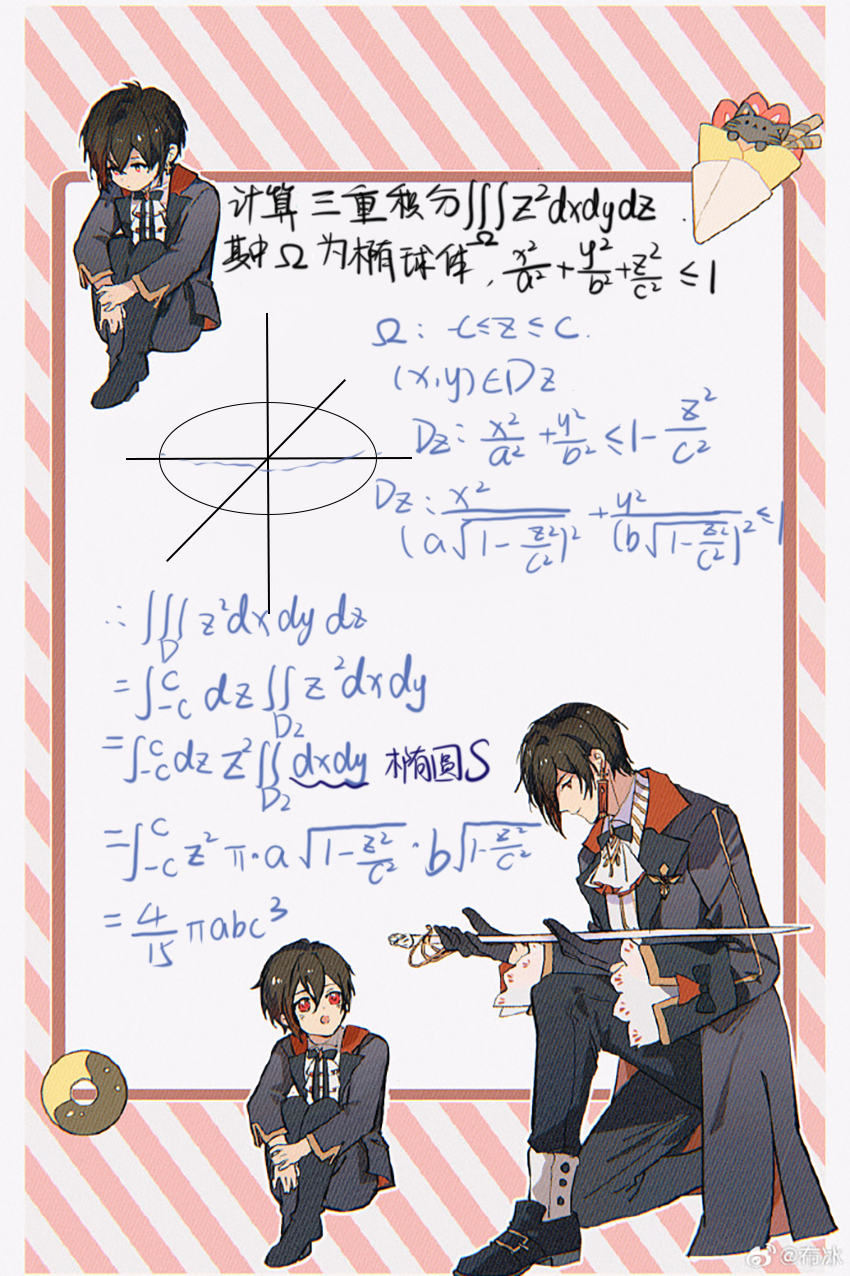 计算三重积分∭_Ω z²dxdydz.
其中Ω为椭球体, x²/a² + y²/b² + z²/c² ≤ 1
Ω: -c ≤ z ≤ c.
(x,y)∈Dz
Dz: x²/a² + y²/b² ≤ 1 - z²/c²
Dz: x²/(a√(1 - z²/c²))² + y²/(b√(1 - z²/c²))² ≤ 1
∴ ∭_D z²dxdydz
= ∫_{-c}^{c} dz ∬_{D2} z²dxdy
= ∫_{-c}^{c} dz z² ∬_{D2} dxdy 椭圆S
= ∫_{-c}^{c} z² π·a√(1 - z²/c²)·b√(1 - z²/c²)
= 4/15 πabc³
@布冰